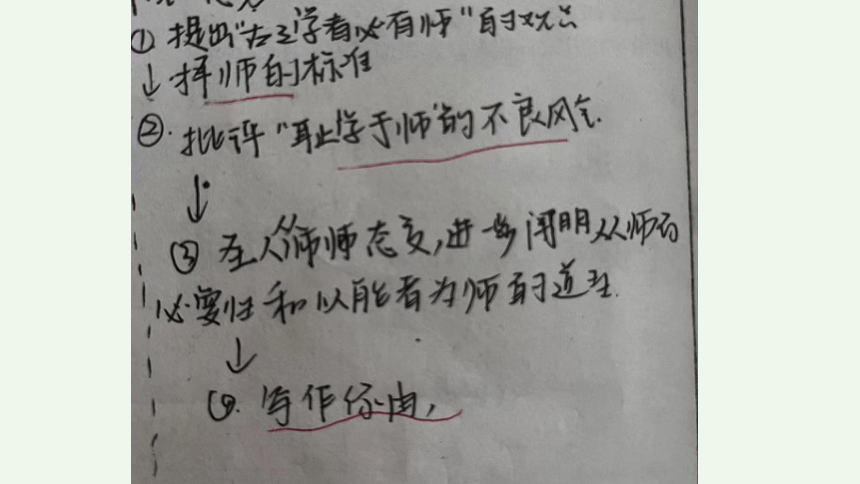 ①提出"古之学者必有师"的观点
↓择师的标准
②.批评"耻学于师"的不良风气.
↓
③圣人从师师态度,进一步阐明从师的
必要性和以能者为师的道理.
↓
④.写作缘由,